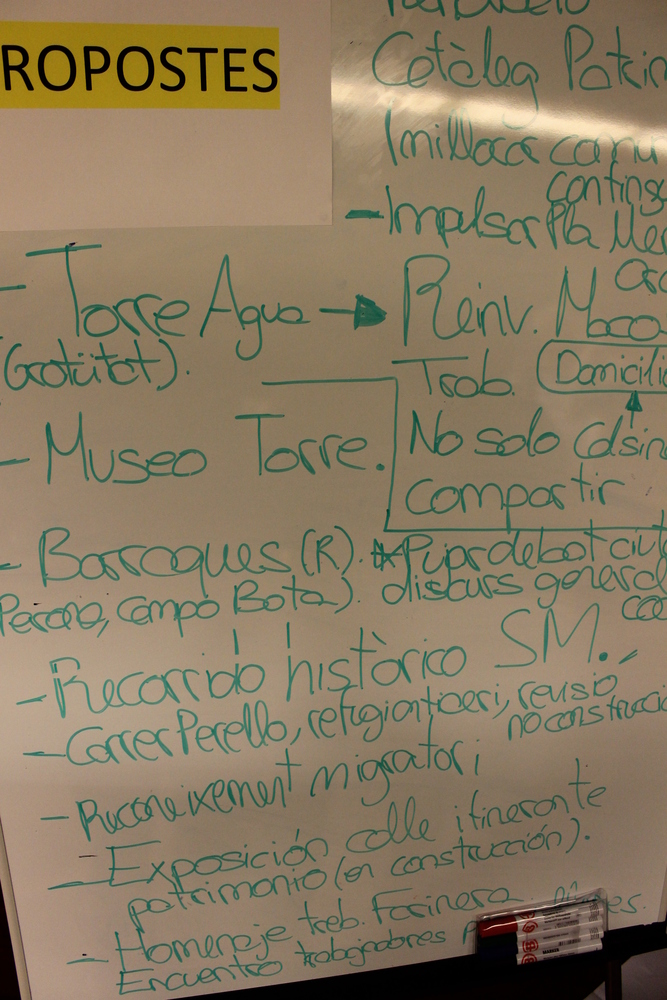 ROPOSTES
Catàleg
Imillorar
conting
- Impulsar Pla
- Torre Agua → Reinv.
(Gratüitat).
Trab. Domicili
- Museo Torre.
No solo
compartir
- Barraques (R). *
discurs general
Perona, campo Bota).
- Recorrido històrico SM.
- Carrer Perelló, refugi antiaeri, revisió
no construcció
- Reconeixement migratori
- Exposición calle itinerante
patrimonio (en construcción).
- Homenaje treb. Farinera
Encuentro trabajadores